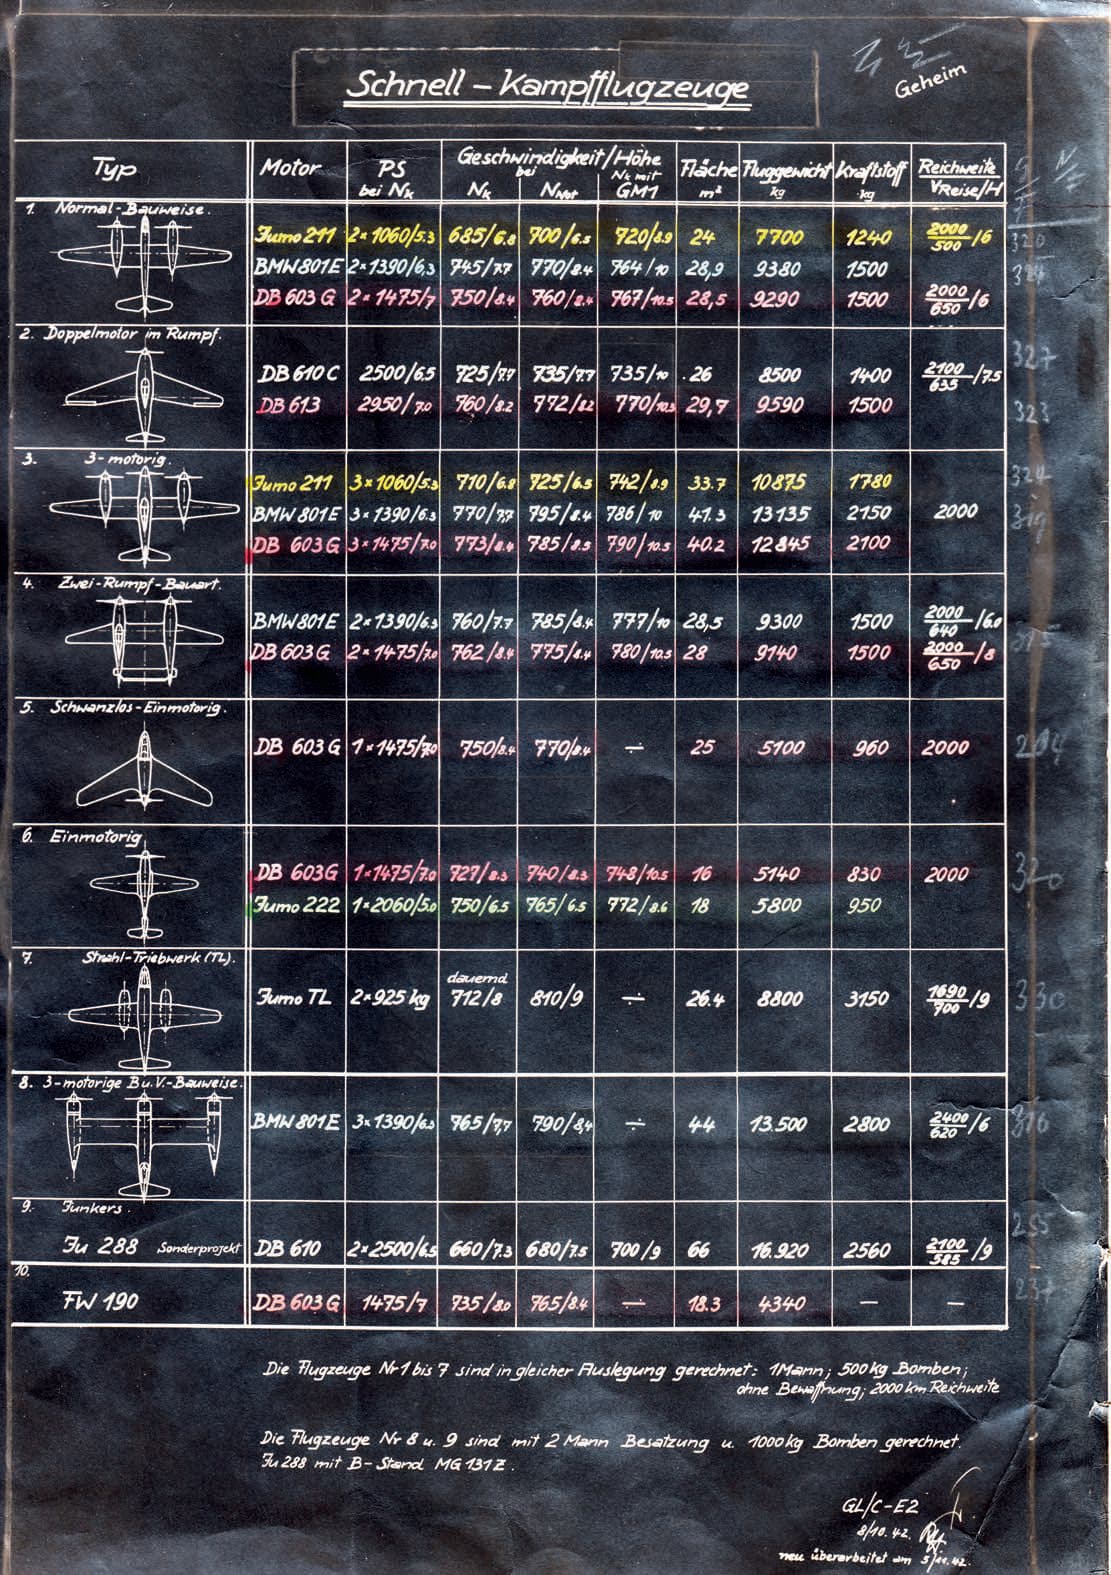 Schnell – Kampfflugzeuge
Geheim
Typ Motor PS bei Nk Geschwindigkeit/Höhe bei Nk NNot Nk mit GM1 Fläche m² Fluggewicht kg Kraftstoff kg Reichweite VReise/H
1. Normal-Bauweise.
Jumo 211 2×1060/5.3 685/6.8 700/6.5 720/8.9 24 7700 1240 2000/500/6
BMW 801E 2×1390/6,3 745/7.7 770/8.4 764/10 28,9 9380 1500
DB 603 G 2×1475/7 750/8.4 760/8.4 767/10.5 28,5 9290 1500 2000/650/6
2. Doppelmotor im Rumpf.
DB 610 C 2500/6.5 725/7.7 735/7.7 735/10 26 8500 1400 2100/635/7.5
DB 613 2950/7.0 760/8.2 772/8.2 770/10.5 29,7 9590 1500
3. 3-motorig.
Jumo 211 3×1060/5.3 710/6.8 725/6.5 742/8.9 33.7 10875 1780
BMW 801E 3×1390/6.3 770/7.7 795/8.4 786/10 41.3 13135 2150 2000
DB 603 G 3×1475/7.0 773/8.4 785/8.5 790/10.5 40.2 12845 2100
4. Zwei-Rumpf-Bauart.
BMW 801E 2×1390/6.3 760/7.7 785/8.4 777/10 28,5 9300 1500 2000/640/6.0
DB 603 G 2×1475/7.0 762/8.4 775/8.4 780/10.5 28 9140 1500 2000/650/8
5. Schwanzlos-Einmotorig.
DB 603 G 1×1475/7.0 750/8.4 770/8.4 ÷ 25 5100 960 2000
6. Einmotorig
DB 603G 1×1475/7.0 727/8.3 740/8.3 748/10.5 16 5140 830 2000
Jumo 222 1×2060/5.0 750/6.5 765/6.5 772/8.6 18 5800 950
7. Strahl-Triebwerk (TL).
dauernd
Jumo TL 2×925 kg 712/8 810/9 ÷ 26.4 8800 3150 1690/700/9
8. 3-motorige B.u.V.-Bauweise.
BMW 801E 3×1390/6.3 765/7,7 790/8,4 ÷ 44 13.500 2800 2400/620/6
9. Junkers.
Ju 288 Sonderprojekt DB 610 2×2500/6.5 660/7.3 680/7.5 700/9 66 16.920 2560 2100/585/9
10.
FW 190 DB 603 G 1475/7 735/8.0 765/8.4 — 18.3 4340 — —
320
327
323
324
319
330
316
255
Die Flugzeuge Nr 1 bis 7 sind in gleicher Auslegung gerechnet: 1 Mann; 500 kg Bomben;
ohne Bewaffnung; 2000 km Reichweite
Die Flugzeuge Nr 8 u. 9 sind mit 2 Mann Besatzung u. 1000 kg Bomben gerechnet.
Ju 288 mit B-Stand MG 131 Z.
GL/C-E2
8/10.42.
neu überarbeitet am 5/11.42.